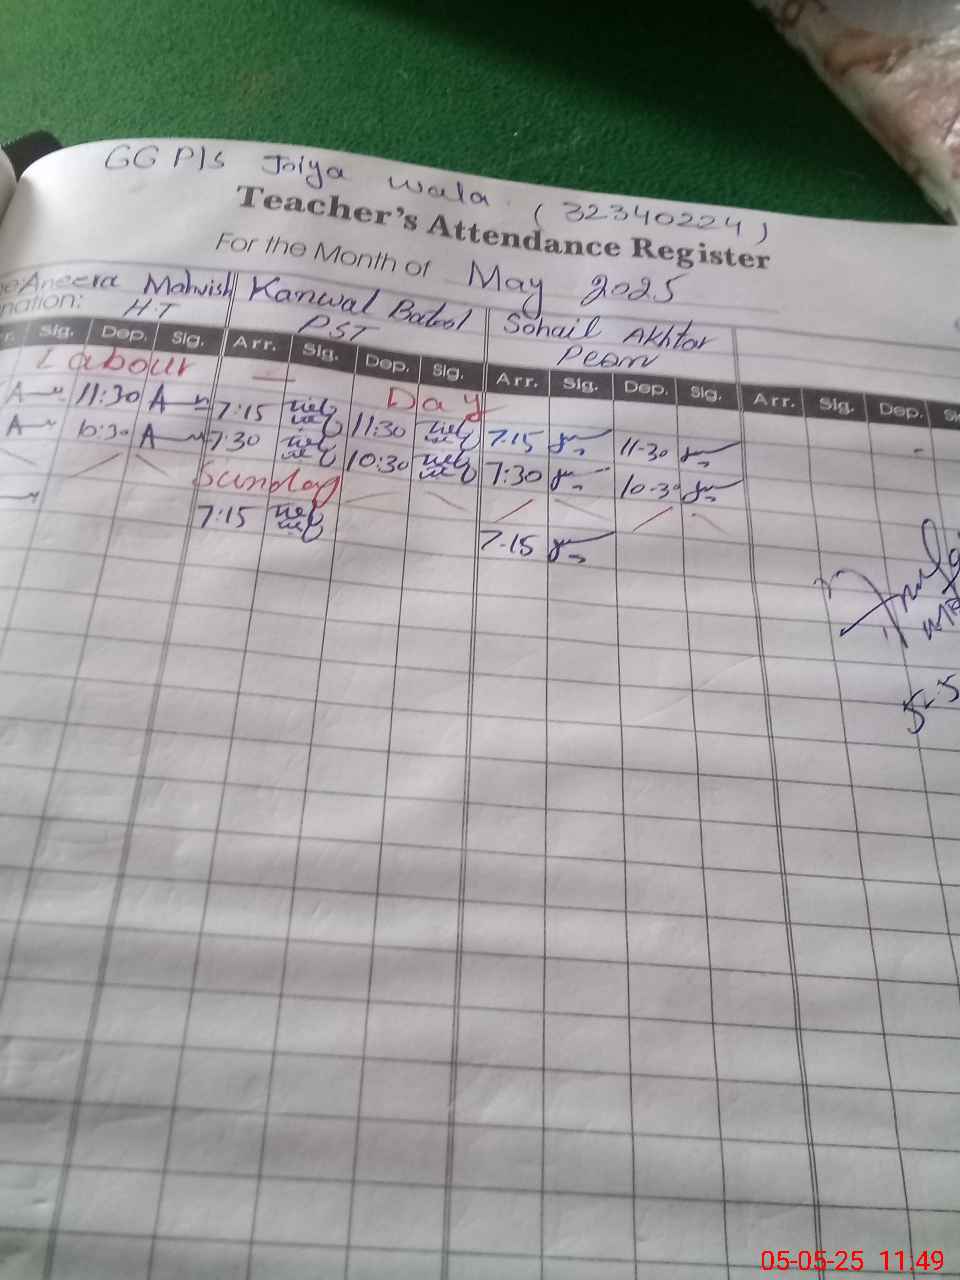 GGP/S Joiya wala. (32340224)
Teacher's Attendance Register
For the Month of May 2025
Aneera Mahwish Kanwal Batool Sohail Akhtar
nation: H.T PST Peon
r. Sig. Dep. Sig. Arr. Sig. Dep. Sig. Arr. Sig. Dep. Sig. Arr. Sig. Dep. Si
Labour — Day
A 11:30 A 7:15 11:30 7.15 11-30
A 10:30 A 7:30 10:30 7:30 10-30
Sunday
7:15 7-15
5-5
05-05-25 11:49